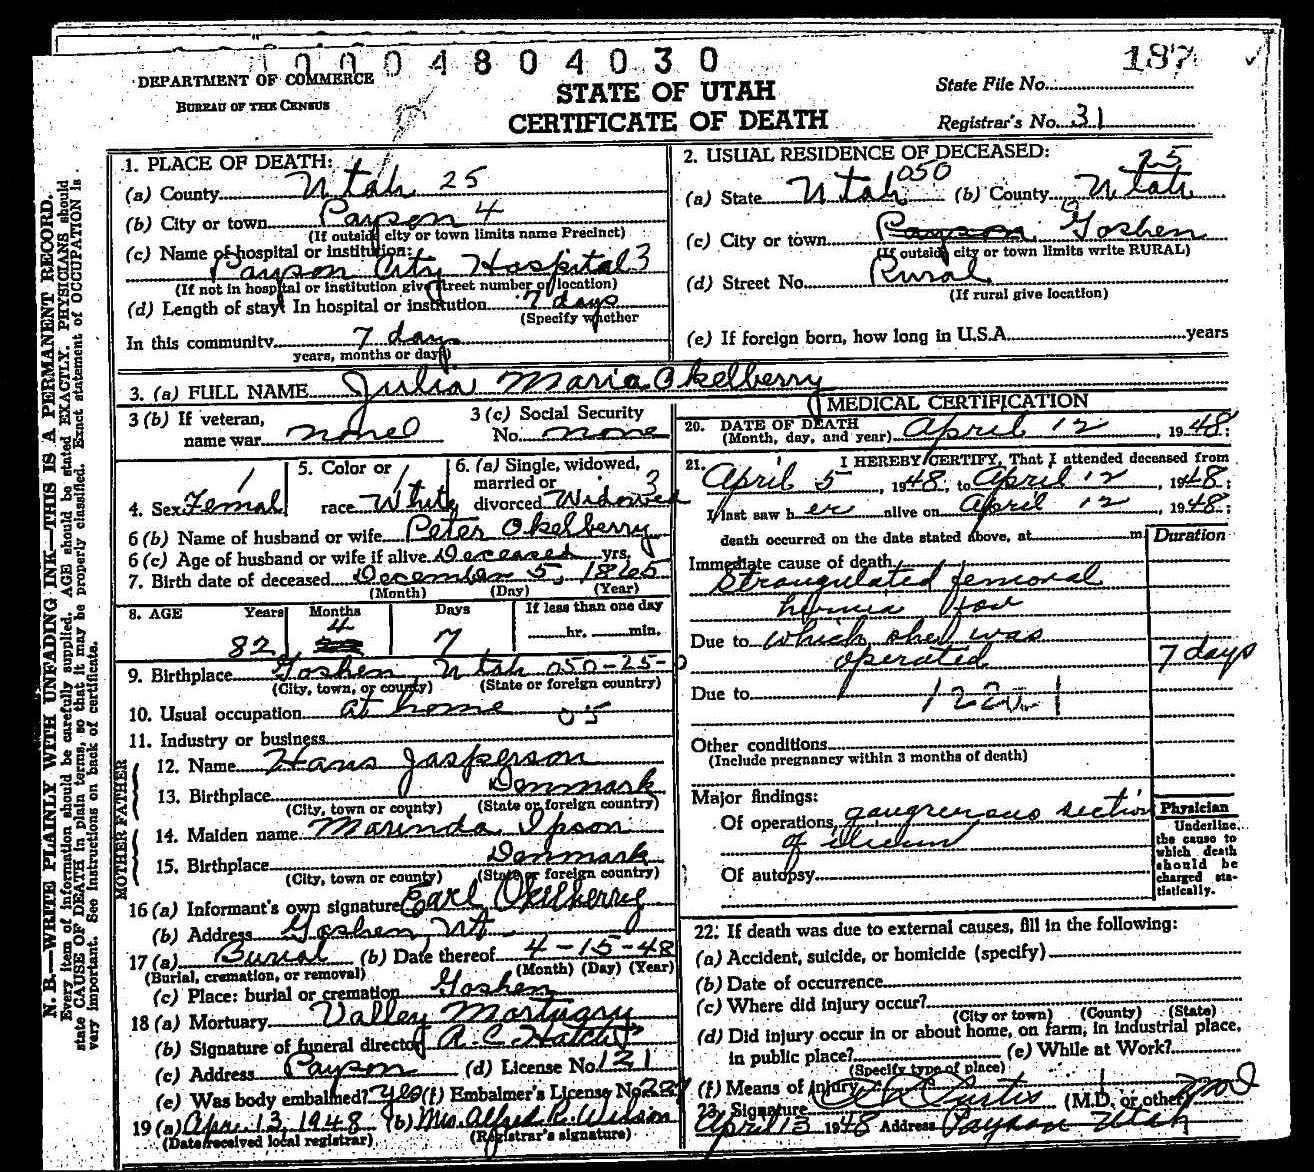 0004804030
187
DEPARTMENT OF COMMERCE
BUREAU OF THE CENSUS
STATE OF UTAH
CERTIFICATE OF DEATH
State File No.
Registrar's No. 31
N. B.—WRITE PLAINLY WITH UNFADING INK—THIS IS A PERMANENT RECORD.
Every item of information should be carefully supplied. AGE should be stated EXACTLY. PHYSICIANS should
state CAUSE OF DEATH in plain terms, so that it may be properly classified. Exact statement of OCCUPATION is
very important. See instructions on back of certificate.
1. PLACE OF DEATH:
(a) County Utah 25
(b) City or town Payson 4
(If outside city or town limits name Precinct)
(c) Name of hospital or institution:
Payson City Hospital 3
(If not in hospital or institution give street number or location)
(d) Length of stay: In hospital or institution 7 days
(Specify whether
In this community 7 days
years, months or days)
2. USUAL RESIDENCE OF DECEASED:
25
(a) State Utah 050 (b) County Utah
(c) City or town Payson Goshen
(If outside city or town limits write RURAL)
(d) Street No. Rural
(If rural give location)
(e) If foreign born, how long in U.S.A. years
3. (a) FULL NAME Julia Maria Okelberry
3 (b) If veteran,
name war none
3 (c) Social Security
No. none
4. Sex Femal 1
5. Color or
race White 1
6. (a) Single, widowed,
married or
divorced Widowed 3
6 (b) Name of husband or wife Peter Okelberry
6 (c) Age of husband or wife if alive Deceased yrs.
7. Birth date of deceased December 5, 1865
(Month) (Day) (Year)
8. AGE Years Months Days If less than one day
82 4 7 hr. min.
9. Birthplace Goshen Utah 050-25-0
(City, town, or county) (State or foreign country)
10. Usual occupation at home 05
11. Industry or business
FATHER
12. Name Hans Jasperson
13. Birthplace Denmark
(City, town or county) (State or foreign country)
MOTHER
14. Maiden name Marinda Ipson
15. Birthplace Denmark
(City, town or county) (State or foreign country)
16 (a) Informant's own signature Earl Okelberry
(b) Address Goshen Ut
17 (a) Burial (b) Date thereof 4-15-48
(Burial, cremation, or removal) (Month) (Day) (Year)
(c) Place: burial or cremation Goshen
18 (a) Mortuary Valley Mortuary
(b) Signature of funeral director A. C. Hatch
(c) Address Payson (d) License No. 121
(e) Was body embalmed? Yes (f) Embalmer's License No. 227
19 (a) Apr. 13, 1948 (b) Mrs. Alfred R. Wilson
(Date received local registrar) (Registrar's signature)
MEDICAL CERTIFICATION
20. DATE OF DEATH
(Month, day, and year) April 12, 1948;
21. I HEREBY CERTIFY, That I attended deceased from
April 5, 1948, to April 12, 1948;
I last saw her alive on April 12, 1948;
death occurred on the date stated above, at m.
Duration
Immediate cause of death
Strangulated femoral
hernia for
Due to which she was
operated 7 days
Due to
Other conditions
(Include pregnancy within 3 months of death)
Major findings:
Of operations gangrenous section
of ileum
Of autopsy
Physician
Underline
the cause to
which death
should be
charged sta-
tistically.
22. If death was due to external causes, fill in the following:
(a) Accident, suicide, or homicide (specify)
(b) Date of occurrence
(c) Where did injury occur?
(City or town) (County) (State)
(d) Did injury occur in or about home, on farm, in industrial place,
in public place? (e) While at Work?
(Specify type of place)
(f) Means of Injury
23. Signature Curtis (M.D. or other) MD
April 13 1948 Address Payson Utah